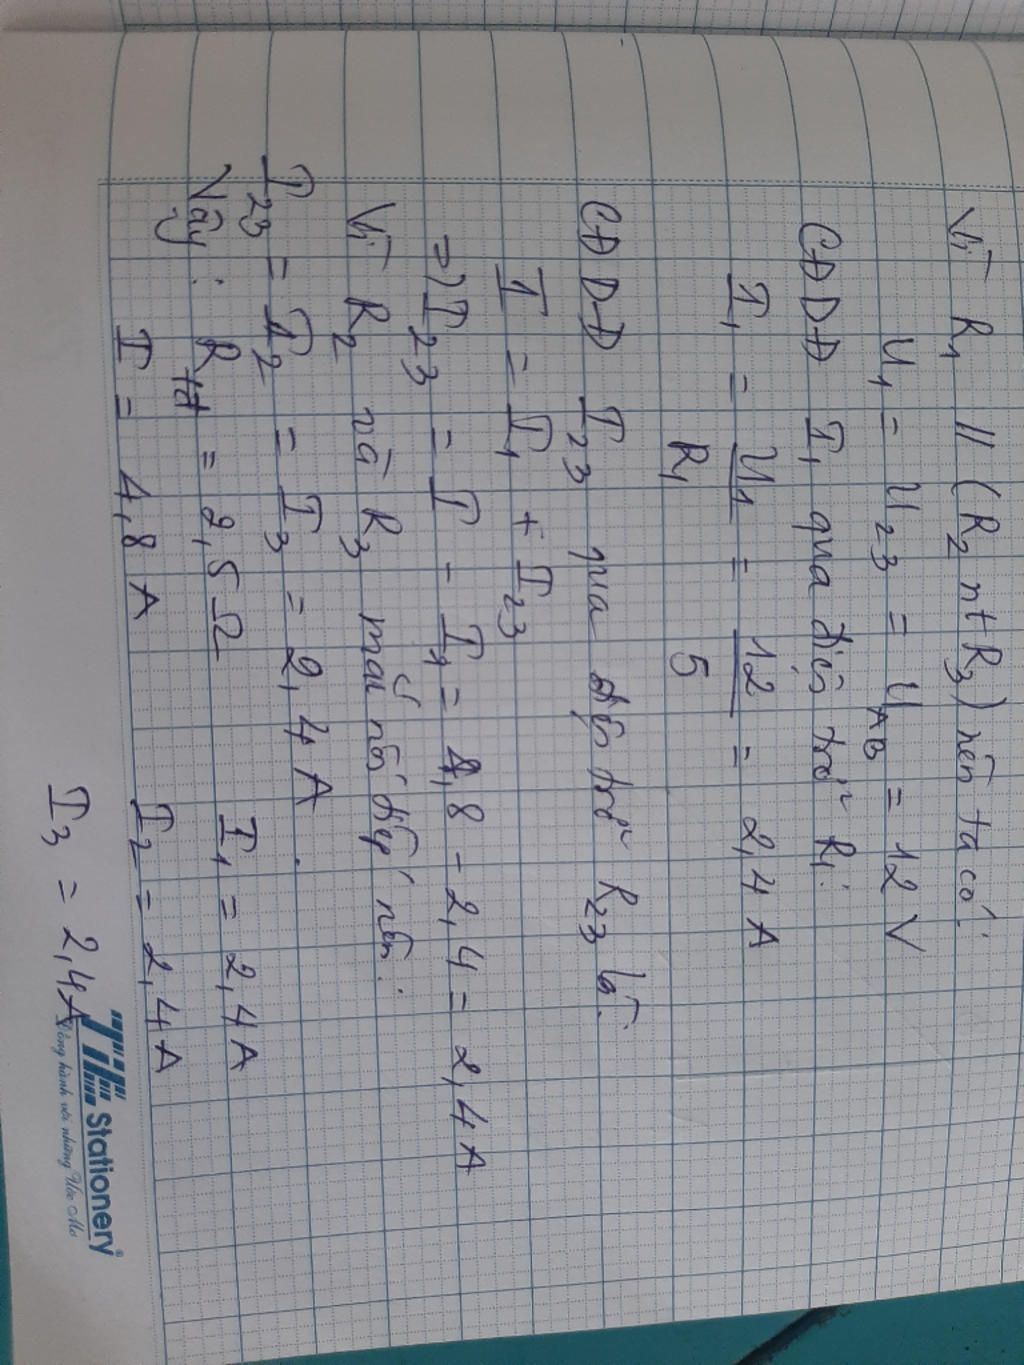 Vì R1 // (R2 nt R3) nên ta có:
U1 = U23 = UAB = 12 V
CĐDĐ I1 qua điện trở R1:
I1 = U1/R1 = 12/5 = 2,4 A
CĐDĐ I23 qua điện trở R23 là:
I = I1 + I23
=> I23 = I - I1 = 4,8 - 2,4 = 2,4 A
Vì R2 và R3 mắc nối tiếp nên:
I23 = I2 = I3 = 2,4 A.
Vậy: Rtđ = 2,5 Ω I1 = 2,4 A
I = 4,8 A I2 = 2,4 A
I3 = 2,4 A
Stationery
Đồng hành với những Ước Mơ